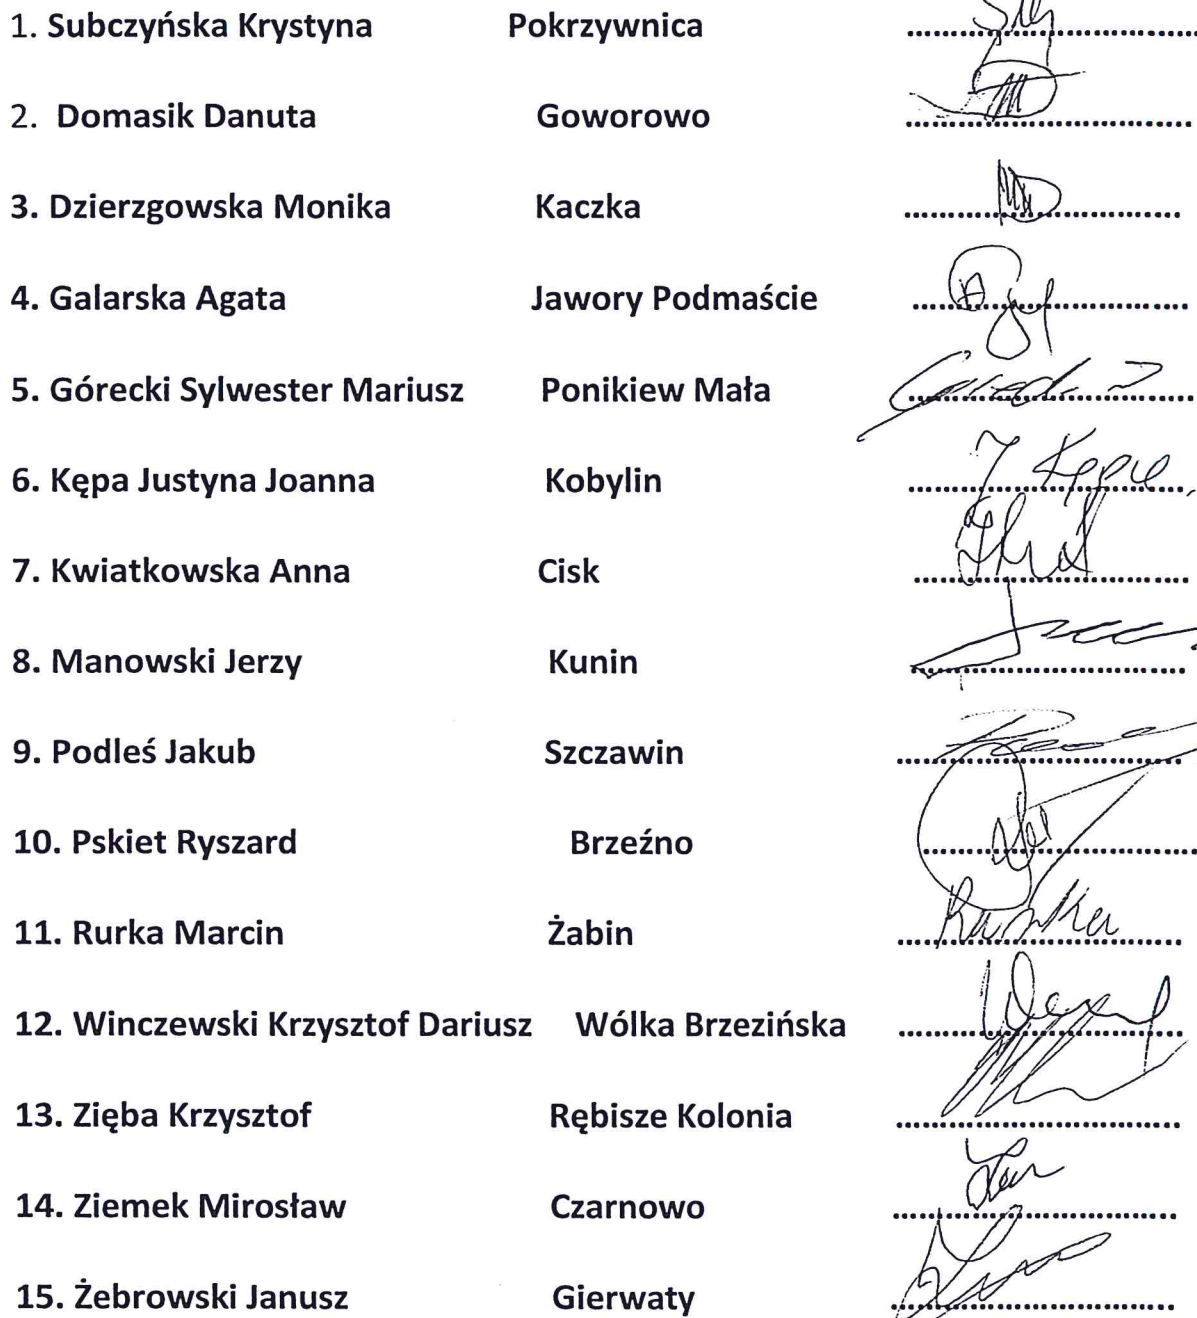 1. Subczyńska Krystyna Pokrzywnica
2. Domasik Danuta Goworowo
3. Dzierzgowska Monika Kaczka
4. Galarska Agata Jawory Podmaście
5. Górecki Sylwester Mariusz Ponikiew Mała
6. Kępa Justyna Joanna Kobylin
7. Kwiatkowska Anna Cisk
8. Manowski Jerzy Kunin
9. Podleś Jakub Szczawin
10. Pskiet Ryszard Brzeźno
11. Rurka Marcin Żabin
12. Winczewski Krzysztof Dariusz Wólka Brzezińska
13. Zięba Krzysztof Rębisze Kolonia
14. Ziemek Mirosław Czarnowo
15. Żebrowski Janusz Gierwaty